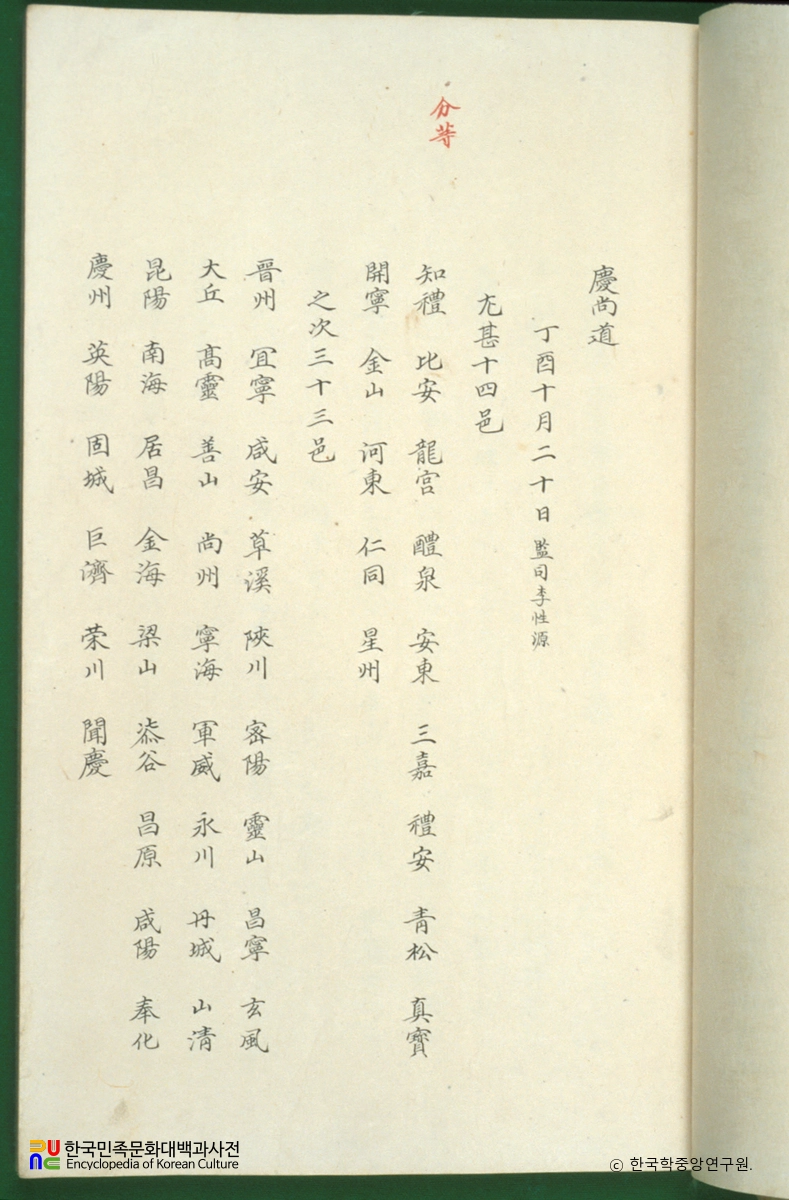 分等
慶尚道
丁酉十月二十日 監司李性源
尤甚十四邑
知禮 比安 龍宮 醴泉 安東 三嘉 禮安 青松 真寶
開寧 金山 河東 仁同 星州
之次三十三邑
晋州 冝寧 咸安 草溪 陜川 宻陽 靈山 昌寧 玄風
大丘 髙靈 善山 尚州 寧海 軍威 永川 丹城 山清
昆陽 南海 居昌 金海 梁山 柒谷 昌原 咸陽 奉化
慶州 英陽 固城 巨濟 荣川 聞慶
한국민족문화대백과사전
Encyclopedia of Korean Culture
ⓒ 한국학중앙연구원.